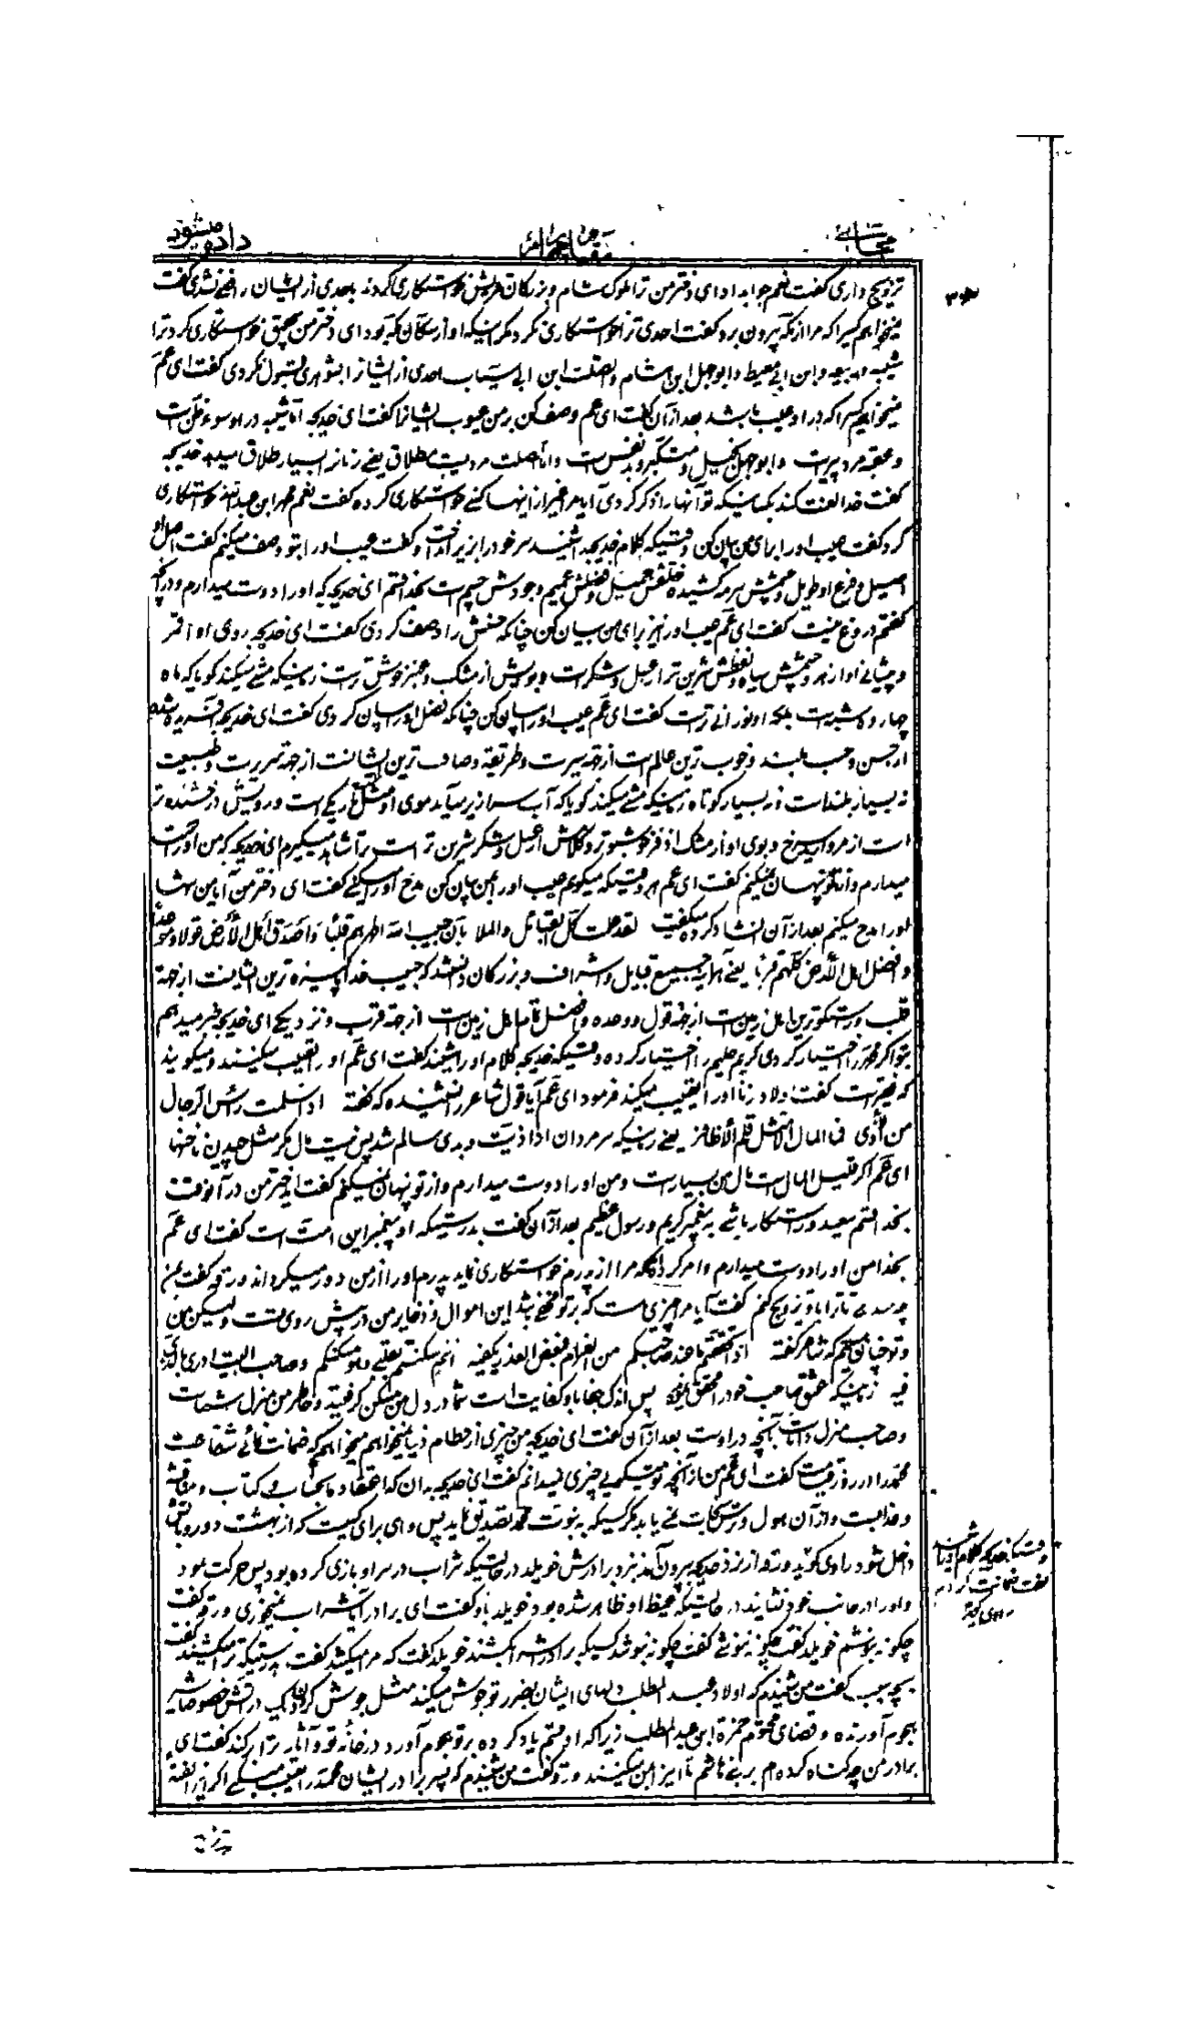 داده میشود
تزویج داری گفت نعم جوابداد ای دختر من ترا ملوک شام و بزرگان قریش خواستگاری کردند باحدی از ایشان راضی نشدی گفت
نمیخواهم کسیرا که مرا از مکه بیرون برد گفت احدی ترا خواستگاری نکرد مگر اینکه او از سکان مکه بود ای دختر من بتحقیق خواستگاری کرد ترا
شیبه و ربیعه و ابن ابی معیط و ابوجهل ابن هشام و الصلت ابن ابی احدی از ایشانرا بشوهری قبول نکردی گفت ای عم
نمیخواهم کسیرا که در او عیب باشد بعد از آن گفت ای عم وصف کن بر من عیوب ایشانرا گفت ای خدیجه اما شیبه در او سوء ظن است
و عقبه مرد پیر است و ابوجهل بخیل و متکبر و بدنفس است و اما صلت مردیست مطلاق یعنی زنانرا بسیار طلاق میدهد خدیجه
گفت خدا لعنت کند کسانیکه تو آنها را ذکر کردی آیا مرا غیر از اینها کسی خواستگاری کرده گفت نعم محمد ابن عبدالله خواستگاری
کرد گفت عیب او را برای من بیان کن وقتیکه کلام خدیجه را شنید سر خود را بزیر انداخت و گفت عیب او را بتو وصف میکنم گفت اصل او
اصیل و فرع او طویل و چشمش سرمه کشیده خلقش جمیل و فضلش عمیم وجودش جسیم است بخدا قسم ای خدیجه که او را دوست میدارم و در آنچه
گفتم دروغ نیست گفت ای عم عیب او را نیز برای من بیان کن چنانکه حسنش را وصف کردی گفت ای خدیجه روی او اقمر
و پیشانی او ازهر و چشمش سیاه و لفظش شیرین تر از عسل و شکر است و بویش از مشک و عنبر خوش تر است زمانیکه مشی میکند گویا که ماه
چهارده شبه است بلکه او نورانی تر است گفت ای عم عیب او را بیان کن چنانکه فضل او را بیان کردی گفت ای خدیجه آفریده شده
از حسن و حسب بلند و خوب ترین عالم است از جهة سیرت و طریقة و صاف ترین ایشانست از جهة سریرت و طبیعت
نه بسیار بلند است و نه بسیار کوتاه زمانیکه مشی میکند گویا که آب سرازیر میآید موی او مثل تاریکی است و رویش درخشنده تر
است از مروارید سرخ و بوی او از مشک اذفر خوشبوتر و کلامش از عسل و شکر شیرین تر است ترا شاهد میگیرم ای خدیجه که من او را دوست
میدارم و از تو پنهان نمیکنم گفت ای عم هر وقتیکه میگویم عیب او را بمن بیان کن مدح او را میکنی گفت ای دختر من آیا من
او را مدح میکنم بعد از آن انشاد کرده میگفت لقد علمت کل القبائل و الملا بأن حبیب الله اطهرهم قلباً و أصدق أهل الأرض قولاً و موعداً
و افضل اهل الأرض کلهم قرباً یعنی آیا جمیع قبایل و اشراف و بزرگان دانستند که حبیب خدا پاکیزه ترین ایشانست از جهة
قلب و راستگوترین اهل زمین است از جهة قول و وعده و افضل تمام اهل زمین است از جهة قرب و نزدیکی ای خدیجه خبر میدهم
بتو اگر محمد را اختیار کردی کریم حلیم را اختیار کرده وقتیکه خدیجه کلام او را شنید گفت ای عم او را تعییب میکنند و میگویند
که فقیر است گفت اولاد زنا او را تعییب میکنند فرمود ای عم آیا قول شاعر را نشنیده که گفته اذا سلمت رأس الرجال
من الأذی فما المال الا مثل قلم الأظافر یعنی زمانیکه سر مردان از اذیت و بدی سالم شد پس نیست مال مگر مثل چیدن ناخنها
ای عم اگر قلیل المال است مال من بسیار است و من او را دوست میدارم و از تو پنهان نمیکنم گفت ایدختر من در آنوقت
بخدا قسم سعید و رستگار باشی به پیغمبر کریم و رسول عظیم بعد از آن گفت بدرستیکه او پیغمبر این امت است گفت ای عم
بخدا من او را دوست میدارم و امر کردم که مرا از پدرم خواستگاری نماید پدرم او را از من دور میگرداند ورقه گفت بمن
چه میدهی تا ترا باو تزویج کنم گفت آیا مرا چیزی هست که بر تو مخفی باشد این اموال و ذخایر من در پیش روی تست و لیکن من
و تو چنانیم که شاعر گفته اذا تحققتم ما عند صاحبکم من الغرام فبعض العذر یکفیه انتم سکنتم بقلبی و هو مسکنکم و صاحب البیت ادری بالذی
فیه زمانیکه عشق صاحب خود را محقق کردید پس اندک جفا باو کفایت است شما در دل من مسکن گرفتید و خاطر من منزل شماست
و صاحب منزل داناست بآنچه در اوست بعد از آن گفت ای خدیجه من چیزی از حطام دنیا نمیخواهم میخواهم که ضمانت نمائی شفاعت
محمد را در روز قیامت گفت ای عم من از آنچه تو میگویی چیزی نمیدانم گفت ای خدیجه بدان که اعتقاد ما بحساب و کتاب و مناقشه
و عذابست و از آن هول و ترس نجات نمی یابد مگر کسیکه به نبوت محمد تصدیق نماید پس وای برای کسیست که از بهشت دور و بآتش
داخل شود راوی گوید ورقه از نزد خدیجه بیرون آمد نزد برادرش خویلد در حالتیکه شراب در سر او بازی کرده بود پس حرکت نمود
و او را در جانب خود نشانید در حالتیکه غیظ او ظاهر شده بود خویلد باو گفت ای برادر آیا شراب نمیخوری ورقه گفت
چگونه بنوشم خویلد گفت چگونه ننوشی گفت چگونه بنوشد کسیکه برادرش را بکشند خویلد گفت که مرا میکشد گفت بدرستیکه ترا میکشند گفت
بچه سبب گفت من شنیدم که اولاد عبدالمطلب دلهای ایشان بضرر تو جوش میکند مثل جوش کردن دیگ در آتش خصوصاً شیر
بهجوم آورنده و قضای محتوم حمزة ابن عبدالمطلب زیرا که او قسم یاد کرده بر تو هجوم آورد در خانه تو و آثار ترا برکند گفت ای
برادر من چه گناه کرده ام بر بنی هاشم تا ایذای من میکنند ورقه گفت من شنیدم که پسر برادر ایشان محمد را تعییب میکنی اگر این را گفته
وقتیکه خدیجه کلام او را شنید
گفت ضمانت کردم